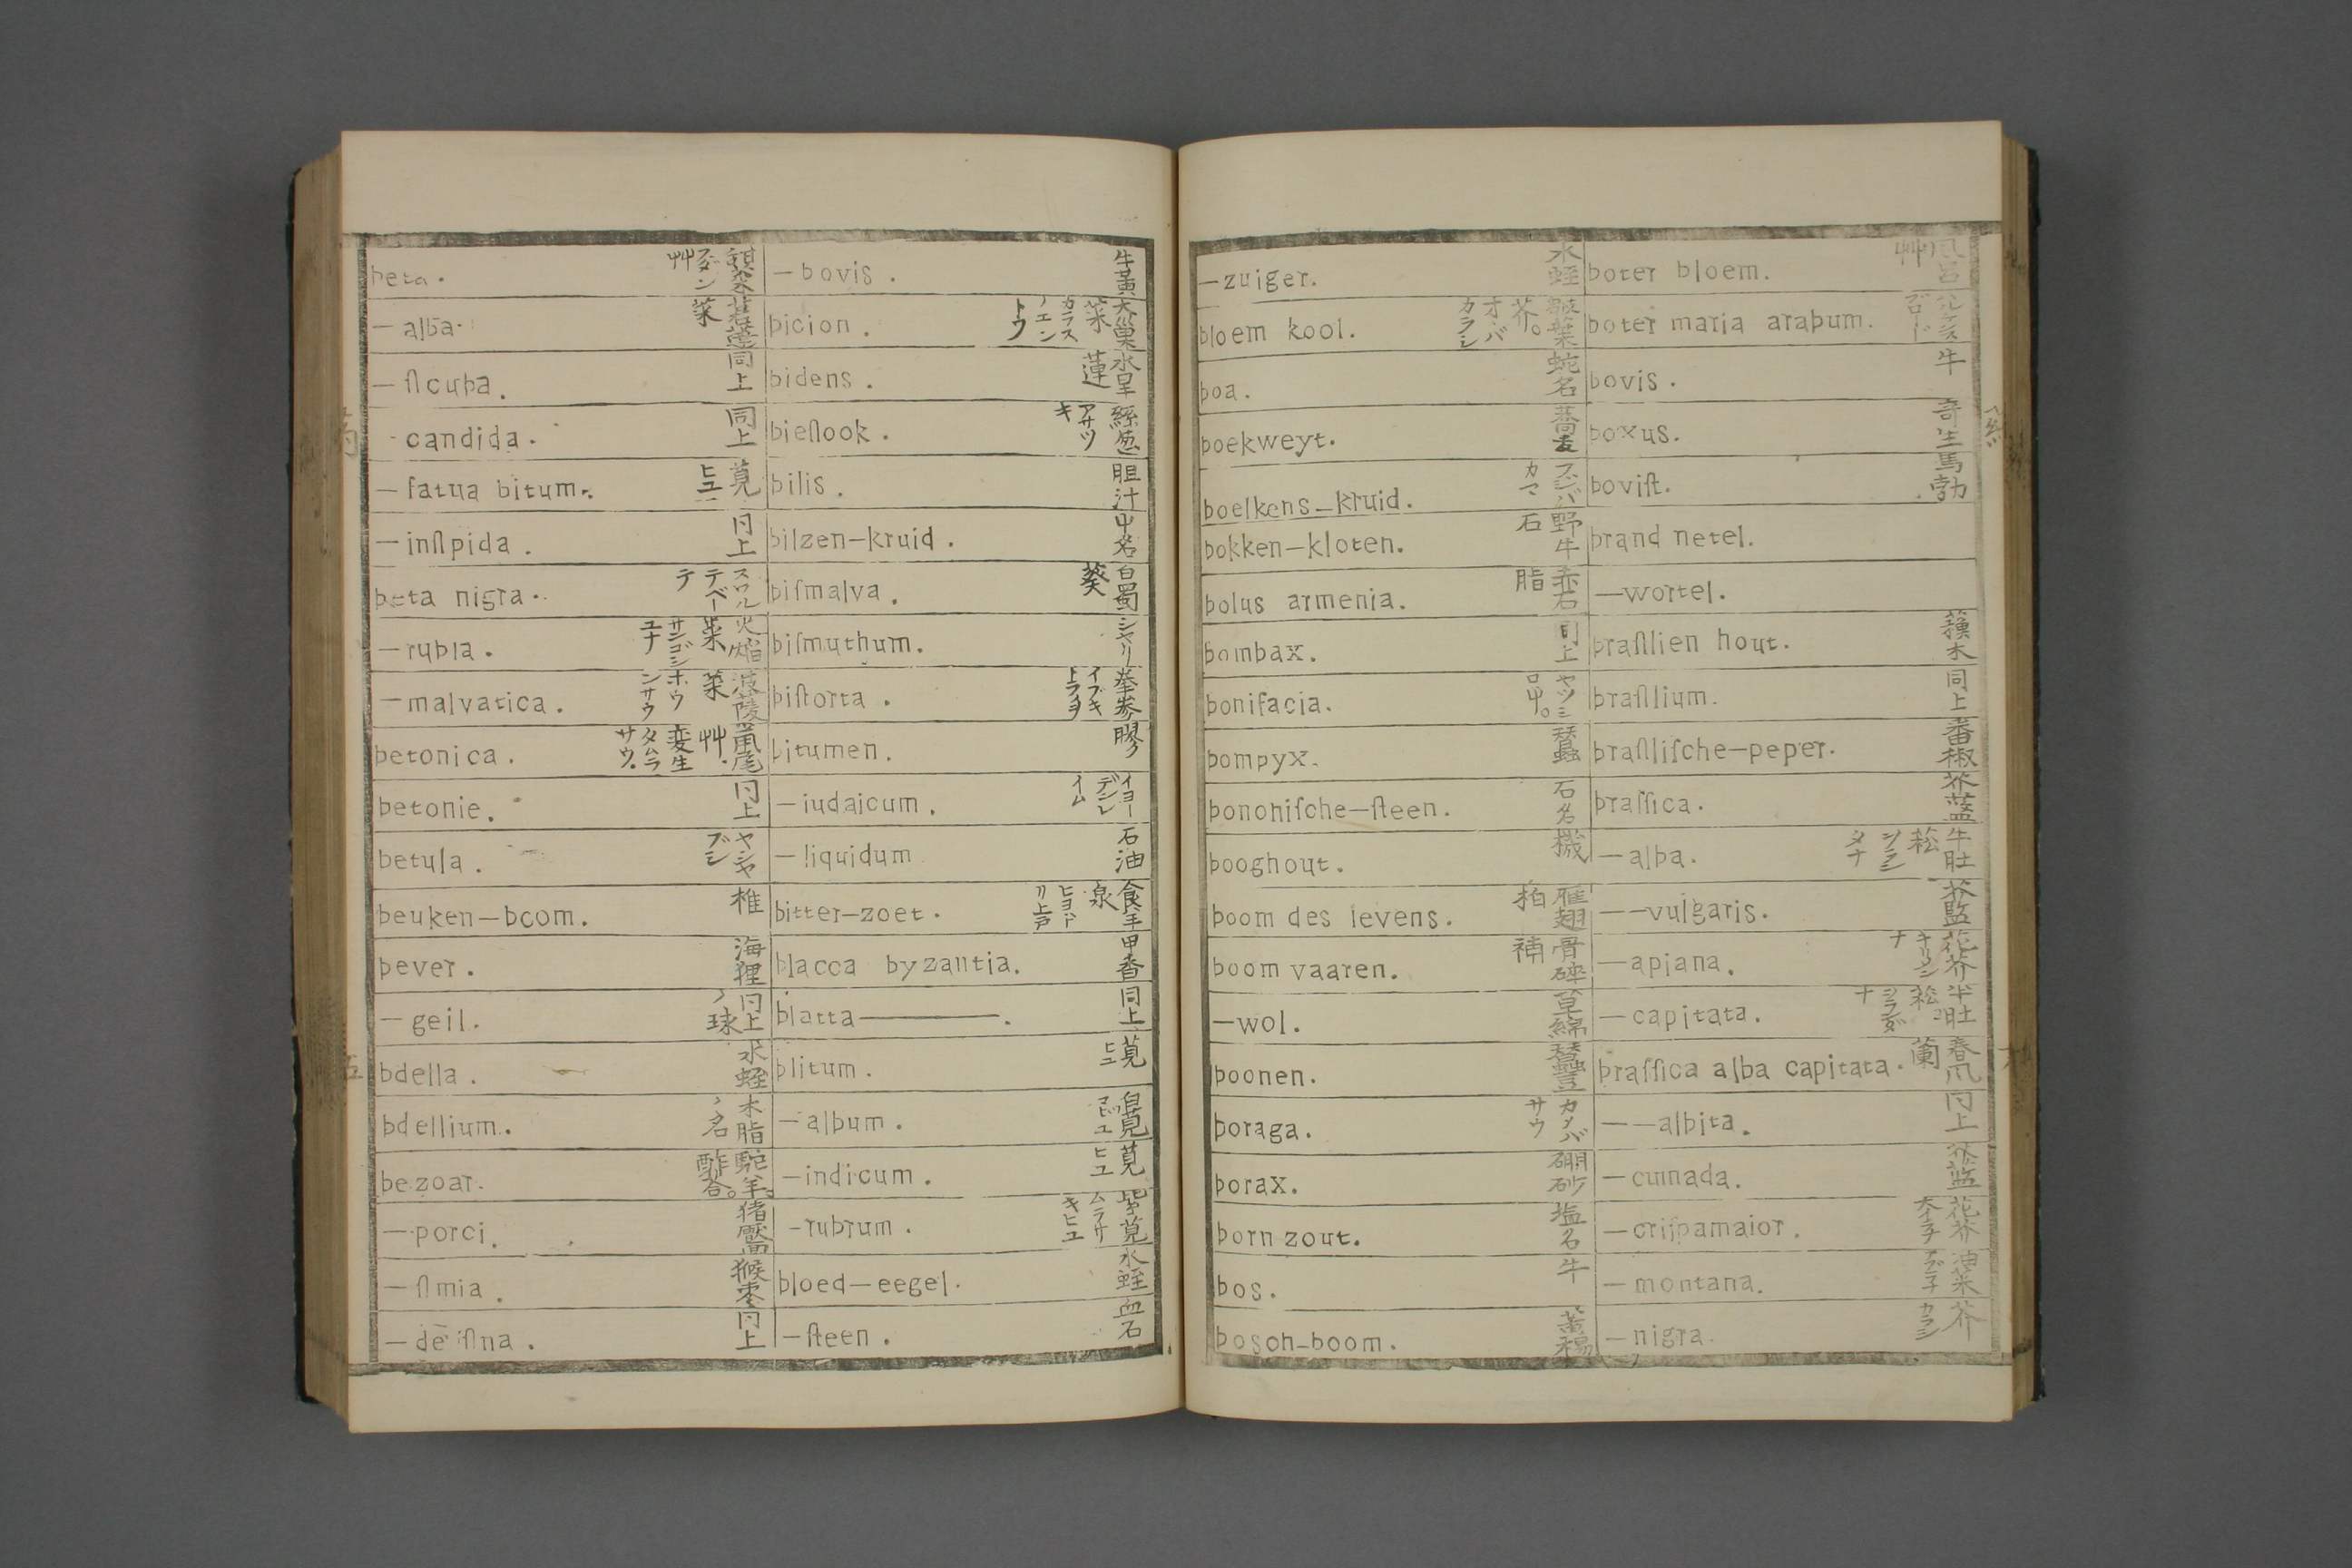 beta.
—alba. 莙薘菜
—ſicuba. 同上
-candida. 同上
—fatua bitum. 莧 ヒユ
—inſipida. 仝上
beta nigra. スワルテベーテ
—rubla. 火焔菜 サンゴジユナ
—malvatica. 菠薐菜 ホウンサウ
betonica.
betonie. 仝上
betula. ヤシヤブシ
beuken—boom. 椎
bever. 海狸
—geil. 仝上ノ球
bdella. 水蛭
bdellium. 木脂ノ名
bezoar. 駝羊。酢荅。
—porci. 猪靨
—ſimia. 猴棗
—de ſina. 仝上
—bovis. 牛黄
bicion. 大巣菜 カラスノエントウ
bidens. 水旱蓮
bieſlook. 絲葱 アサツキ
bilis. 胆汁
bilzen—kruid. 屮名
biſmalva. 白蜀葵
biſmuthum. シヤリ
biſtorta. 拳参 イブキトラヲ
bitumen. 膠
—iudaicum. イヨーデンレイム
—liquidum 石油
bitter—zoet. ヒヨドリ上戸
blacca byzantia. 甲香
blatta————. 同上
blitum. 莧 ヒユ
—album. 白莧
—indicum. 莧 ヒユ
—rubrum. 紫莧 ムラサキヒユ
bloed—eegel. 水蛭
—ſteen. 血石
—zuiger. 水蛭
bloem kool. 皺葉芥。オヽバカラシ
boa. 蛇名
boekweyt. 蕎麦
boelkens—kruid. フジバカマ
bokken—kloten. 野牛石
bolus armenia. 赤石脂
bombax. 同上
bonifacia.
bompyx. 蠶
bononiſche—ſteen. 石名
booghout.
boom des levens. 雁翅柏
boom vaaren. 骨砕補
—wol. 草綿
boonen. 蠶豆
boraga.
borax. 硼砂
born zout. 塩名
bos. 牛
bosch—boom. 黄楊
boter bloem.
boter maria arabum.
bovis. 牛
boxus. 寄生
boviſt. 馬勃
brand netel.
—wortel.
braſilien hout. 蘓木
braſilium. 同上
braſiliſche—peper. 番椒
braſſica. 芥藍
—alba. 牛肚菘
——vulgaris. 芥藍
—apiana. 花芥
—capitata. 牛肚菘
braſſica alba capitata.
——albita. 仝上
—cumada. 芥藍
—criſpamaior. 花芥
—montana.
—nigra. 芥 カラシ